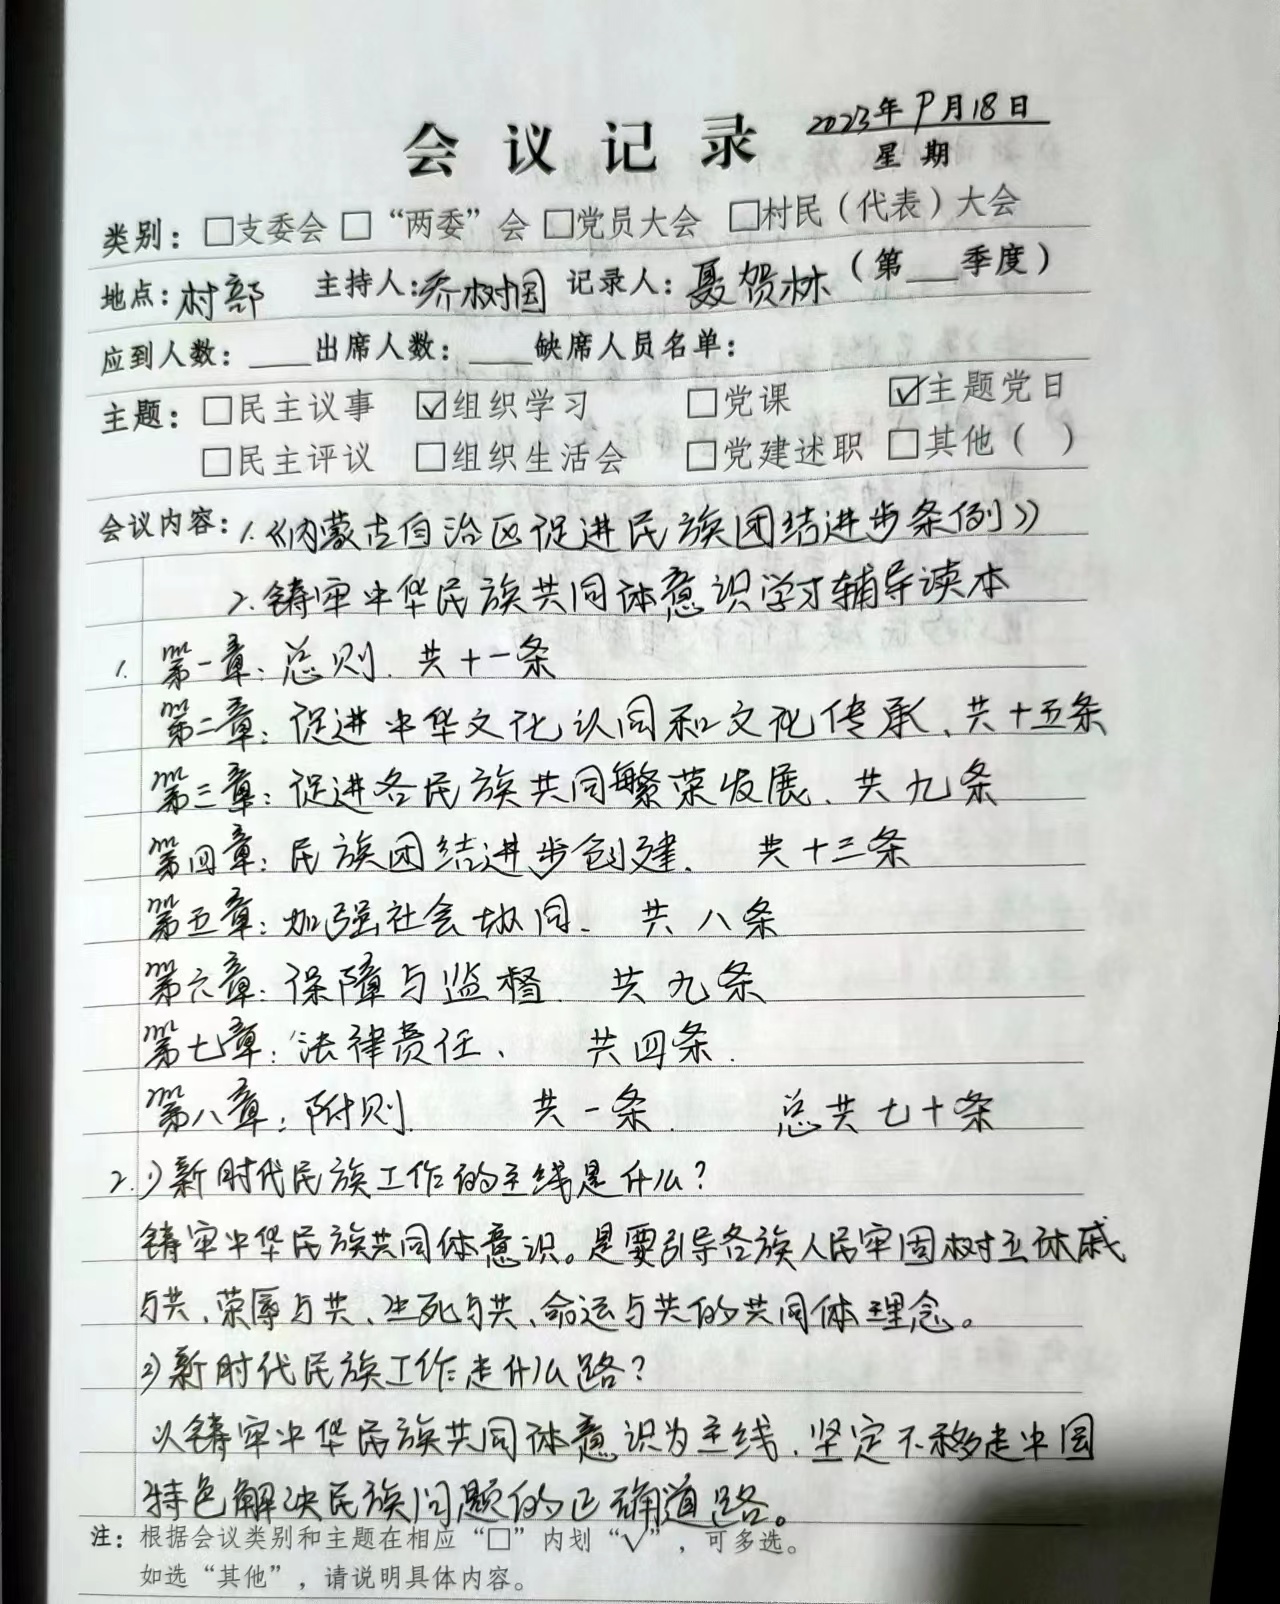 会议记录 2023年9月18日
星期
类别：□支委会 □“两委”会 □党员大会 □村民（代表）大会
地点：村部 主持人：乔树国 记录人：聂贺林（第___季度）
应到人数：____出席人数：____缺席人员名单：
主题：□民主议事 ☑组织学习 □党课 ☑主题党日
□民主评议 □组织生活会 □党建述职 □其他（ ）
会议内容：1.《内蒙古自治区促进民族团结进步条例》
2.铸牢中华民族共同体意识学习辅导读本
1. 第一章：总则.共十一条
第二章：促进中华文化认同和文化传承、共十五条
第三章：促进各民族共同繁荣发展、共九条
第四章：民族团结进步创建、共十三条
第五章：加强社会协同、共八条
第六章：保障与监督.共九条
第七章：法律责任、共四条.
第八章：附则.共一条.总共七十条
2.1)新时代民族工作的主线是什么？
铸牢中华民族共同体意识。是要引导各族人民牢固树立休戚
与共、荣辱与共、生死与共、命运与共的共同体理念。
2)新时代民族工作走什么路？
以铸牢中华民族共同体意识为主线、坚定不移走中国
特色解决民族问题的正确道路。
注：根据会议类别和主题在相应“□”内划“√”，可多选。
如选“其他”，请说明具体内容。